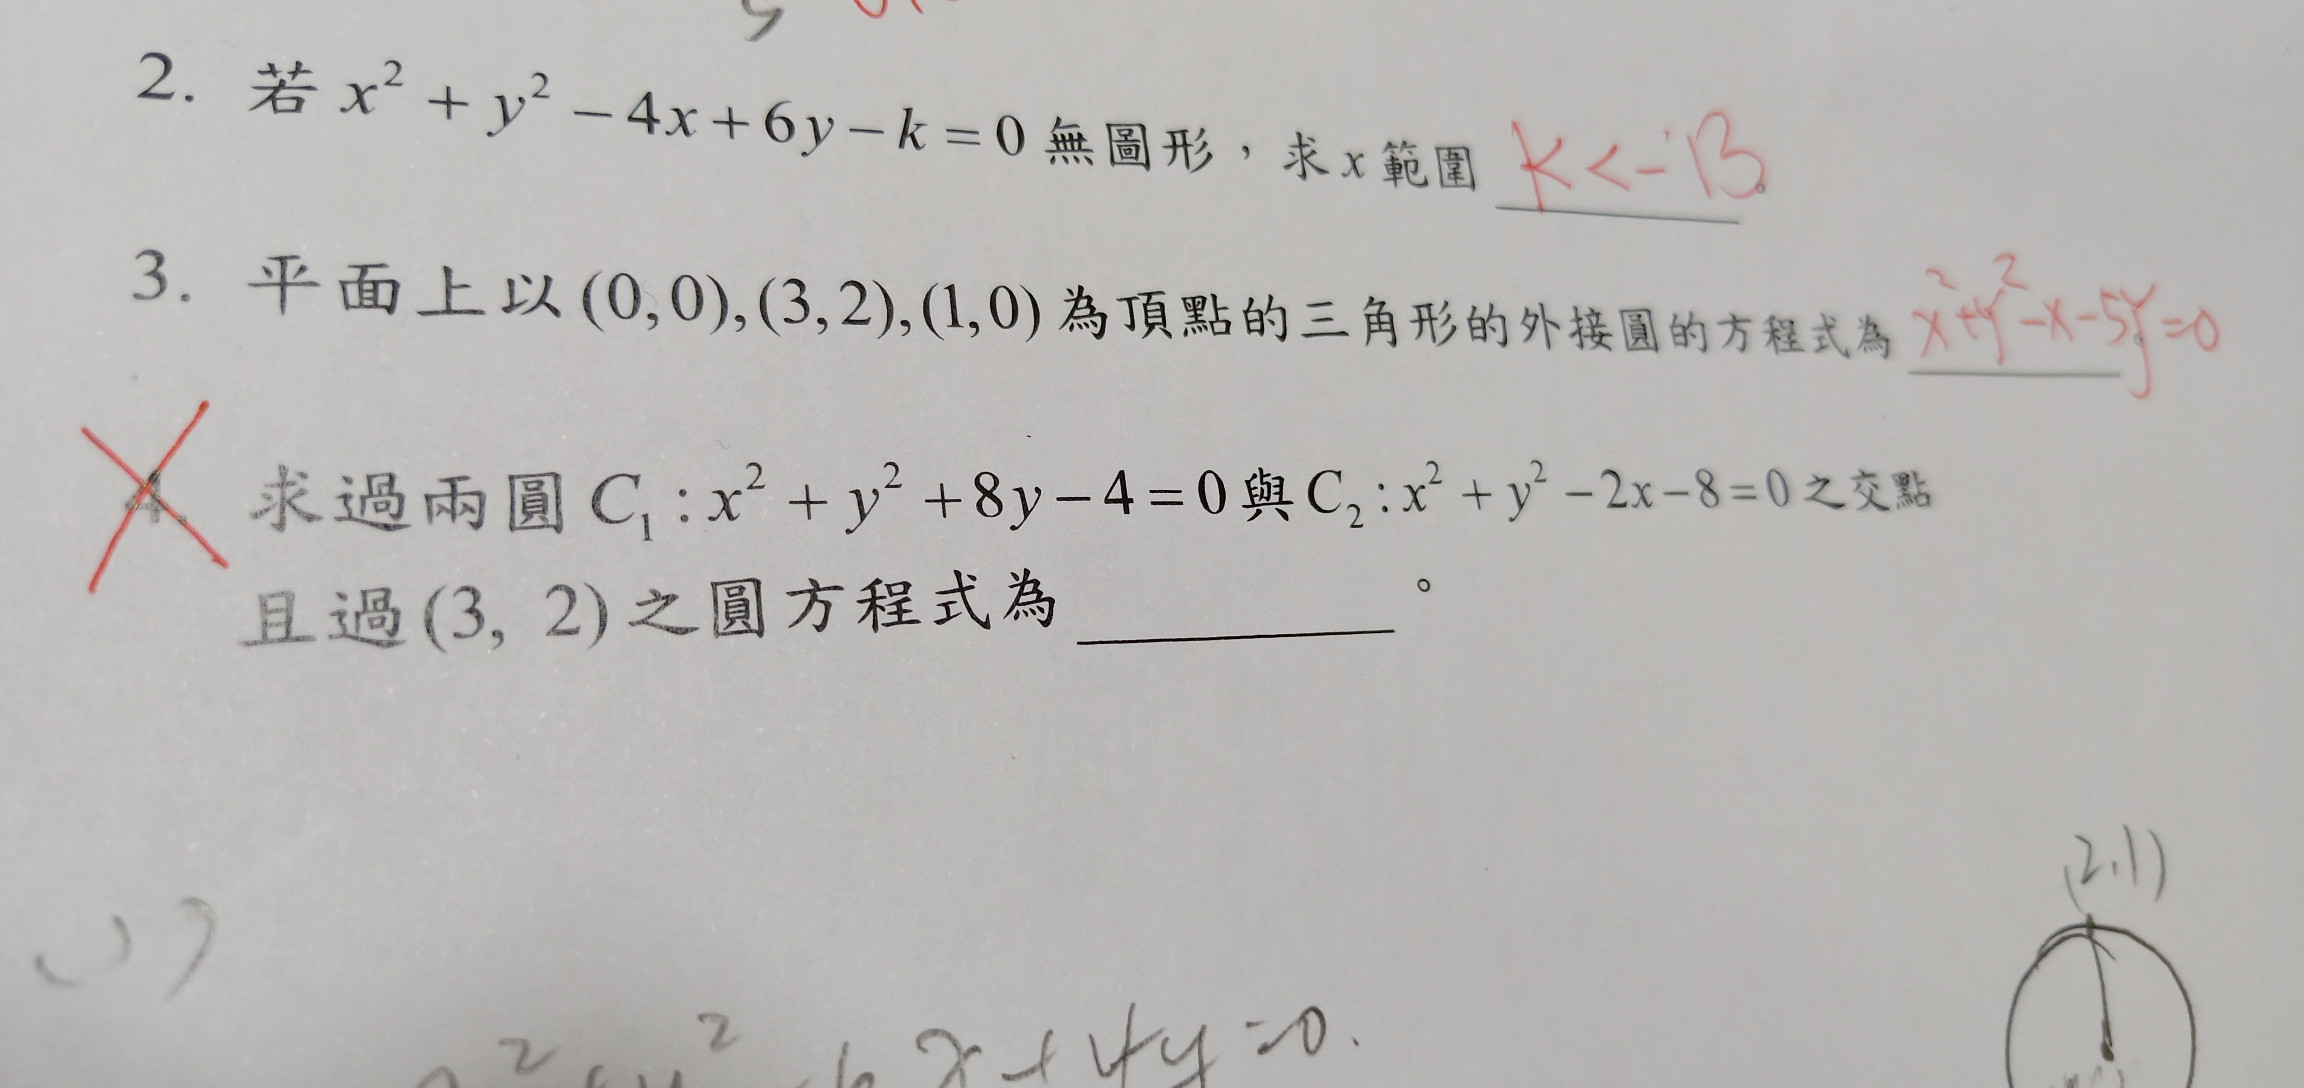 2. 若 x² + y² − 4x + 6y − k = 0 無圖形，求 x 範圍 k < -13 。
3. 平面上以 (0,0),(3,2),(1,0) 為頂點的三角形的外接圓的方程式為 x²+y²-x-5y=0 。
4. 求過兩圓 C₁ : x² + y² + 8y − 4 = 0 與 C₂ : x² + y² − 2x − 8 = 0 之交點
且過 (3, 2) 之圓方程式為 ________ 。
(2,1)
x+4y=0.